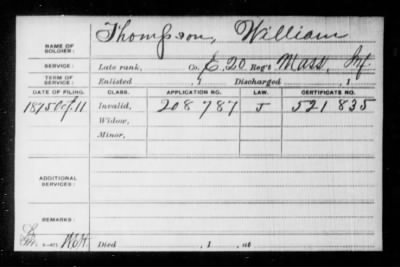 Thompson, William
NAME OF SOLDIER:
SERVICE: Late rank, Co. E, 20 Reg't Mass. Inf
TERM OF SERVICE: Enlisted , 1 Discharged , 1
DATE OF FILING. CLASS. APPLICATION NO. LAW. CERTIFICATE NO.
1875 Oct. 11 Invalid, 208787 J 521835
Widow,
Minor,
ADDITIONAL SERVICES:
REMARKS:
Died , 1 , at